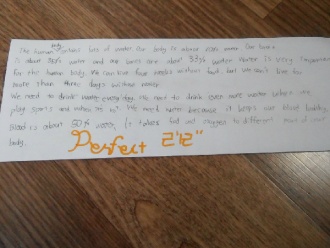 body
The human contains lots of water. Our body is about water. Our brain
is about 80% water and our bones are about 33% water. Water is very important
for the human body. We can live few weeks without food but we can't live for
more than three days without water.
We need to drink water every day. We need to drink even more water when we
play sports and when it's hot. We need water because it keeps our blood healthy.
Blood is about 80% water. It takes food and oxygen to different parts of your
body.
Perfect 2'12"